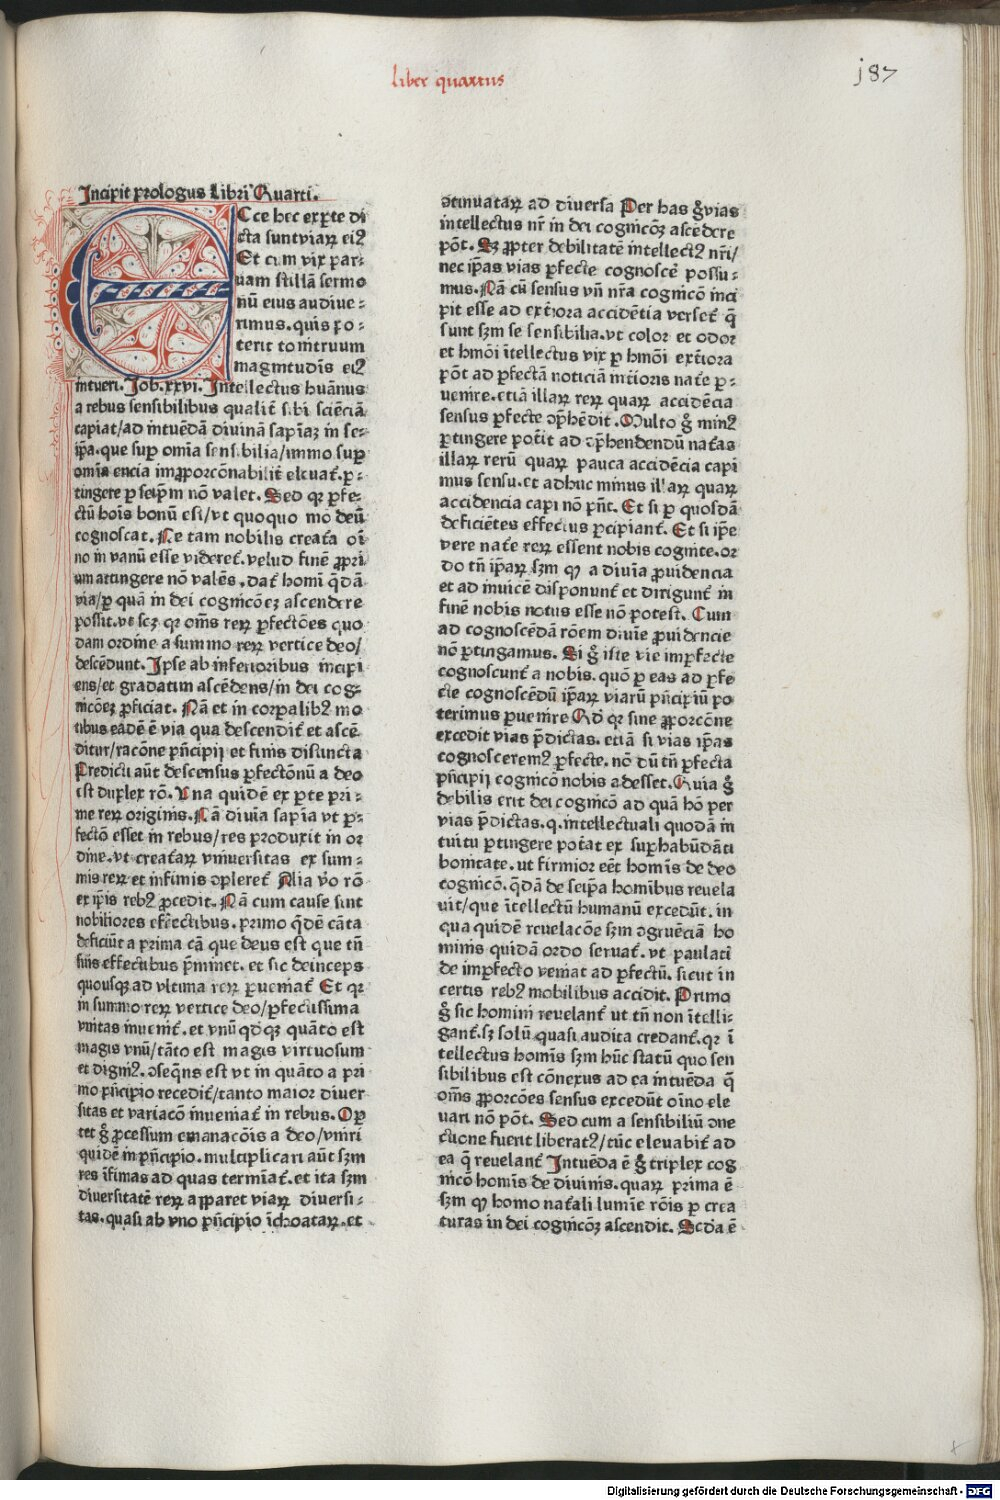 liber quartus
187
Incipit prologus Libri Quarti.
Ecce hec ex ꝑte di
cta sunt viaꝝ eiꝰ
Et cum vix par-
uam stillā sermo
nū eius audiue-
rimus. quis po-
terit tonitruum
magnitudīs eiꝰ
intueri. Job. xxvi. Intellectus huānus
a rebus sensibilibus qualit̄ sibi sciēciā
capiat/ad intuēdā diuinā sapīaꝫ in se-
ip̄a. que suꝑ omīa sensibilia/immo suꝑ
omīa encia imꝓporcōnabilit̄ eleuat̄. ꝑ-
tingere ꝑ seip̄m nō valet. Sed qꝛ ꝑfe-
ctū hoīs bonū est/vt quoquo mo deū
cognoscat. Ne tam nobilis creat̄a oī
no in vanū esse videret̄. velud finē ꝓpri
um attingere nō valēs. dat̄ homī q̄dā
via/ꝑ quā in dei cognicōeꝫ ascendere
possit. vt scꝫ qꝛ om̄s reꝝ ꝑfectōes quo
dam ordine a summo reꝝ vertice deo/
descēdunt. Ipse ab inferioribus incipi
ens/et gradatim ascēdens/in dei cog-
nicōeꝫ ꝓficiat. Nā et in corꝑalibꝰ mo
tibus eadē ē via qua descendit̄ et ascē
ditur/racōne pn̄cipij et finis distincta
Predicti aūt descensus ꝑfectōnū a deo
est duplex rō. Vna quidē ex ꝑte pri-
me reꝝ originis. Nā diuīa sapīa vt ꝑ-
fectō esset in rebus/res produxit in or
dine. vt creat̄aꝝ vniuersitas ex sum-
mis reꝝ et infimis ↄpleret̄ Alia v̄o rō
ex ip̄is rebꝰ ꝓcedit. Nā cum cause sint
nobiliores effectibus. primo q̄dē cāta
deficiūt a prima cā que deus est que tn̄
suis effectibus p̄minet. et sic deinceps
quousqꝫ ad vltima reꝝ ꝑueniat̄ Et qꝛ
in summo reꝝ vertice deo/ꝑfectissima
vnitas inuenit̄. et vnū qdqꝫ quāto est
magis vnū/tāto est magis virtuosum
et digniꝰ. ↄseqn̄s est vt in quāto a pri
mo pn̄cipio recedit̄/tanto maior diuer
sitas et variacō inueniat̄ in rebus. Opꝫ
tet g̊ ꝓcessum emanacōis a deo/vniri
quidē in pn̄cipio. multiplicari aūt sꝫm
res īfimas ad quas termīat̄. et ita sꝫm
diuersitatē reꝝ apparet viaꝝ diuersi-
tas. quasi ab vno pn̄cipio īchoataꝝ. et
ↄtinuataꝝ ad diuersa Per has g̊ vias
intellectus nr̄ in dei cognicōꝫ ascēdere
pōt. Sꝫ ꝓpter debilitatē intellectꝰ nr̄i/
nec ip̄as vias ꝑfecte cognoscē possu-
mus. Nā cū sensus vn̄ nr̄a cognicō inci
pit esse ad ext̄iora accidētia verset̄ q̄
sunt sꝫm se sensibilia. vt color et odor
et hmōi ītellectus vix ꝑ hmōi ext̄iora
pōt ad ꝑfectā noticiā int̄ioris nat̄e ꝑ-
uenire. etiā illaꝝ reꝝ quaꝝ accidēcia
sensus ꝑfecte ↄp̄hēdit. Multo g̊ minꝰ
ꝑtingere potit ad ↄp̄hendendū nat̄as
illaꝝ rerū quaꝝ pauca accidēcia capi
mus sensu. et adhuc minus illaꝝ quaꝝ
accidencia capi nō pn̄t. Et si ꝑ quosdā
deficiētes effectus ꝑcipiant̄. Et si ip̄e
vere nat̄e reꝝ essent nobis cognite. or
do tn̄ ip̄aꝝ sꝫm ꝙ a diuīa ꝓuidencia
et ad inuicē disponunt̄ et dirigunt̄ in
finē nobis notus esse nō potest. Cum
ad cognoscēdā rōem diuīe ꝓuidencie
nō ꝑtingamus. Si g̊ iste vie imꝑfecte
cognoscunt̄ a nobis. quō ꝑ eas ad ꝑfe
cte cognoscēdū ip̄aꝝ viarū pn̄cipiū po
terimus ꝑuenire Qd̄ qꝛ sine ꝓporcōne
excedit vias p̄dictas. etiā si vias ip̄as
cognosceremꝰ ꝑfecte. nō dū tn̄ ꝑfecta
pn̄cipij cognicō nobis adesset. Quia g̊
debilis erit dei cognicō ad quā hō per
vias p̄dictas. q. intellectuali quodā in
tuitu ꝑtingere potat ex suꝑhabūdāti
bonitate. ut firmior eēt homīs de deo
cognicō. q̄dā de seip̄a homībus reuela
uit/que ītellectū humanū excedūt. in
qua quidē reuelacōe sꝫm ↄgruēciā ho
minis quidā ordo seruat̄. vt paulati
de imꝑfecto veniat ad ꝑfectū. sicut in
certis rebꝰ mobilibus accidit. Primo
g̊ sic homini reuelant̄ ut tn̄ non ītelli-
gant̄. sꝫ solū quasi audita credant̄. qꝛ ī
tellectus homīs sꝫm hūc statū quo sen
sibilibus est cōnexus ad ea intuēda q̄
om̄s ꝓporcōes sensus excedūt oīno ele
uari nō pōt. Sed cum a sensibiliū ↄne
ctione fuerit liberatꝰ/tūc eleuabit̄ ad
ea q̄ reuelant̄ Intuēda ē g̊ triplex cog
nicō homīs de diuinis. quaꝝ prima ē
sꝫm ꝙ homo nat̄ali lumīe rōis ꝑ crea
turas in dei cognicōꝫ ascendit. Scd̄a ē
Digitalisierung gefördert durch die Deutsche Forschungsgemeinschaft - DFG